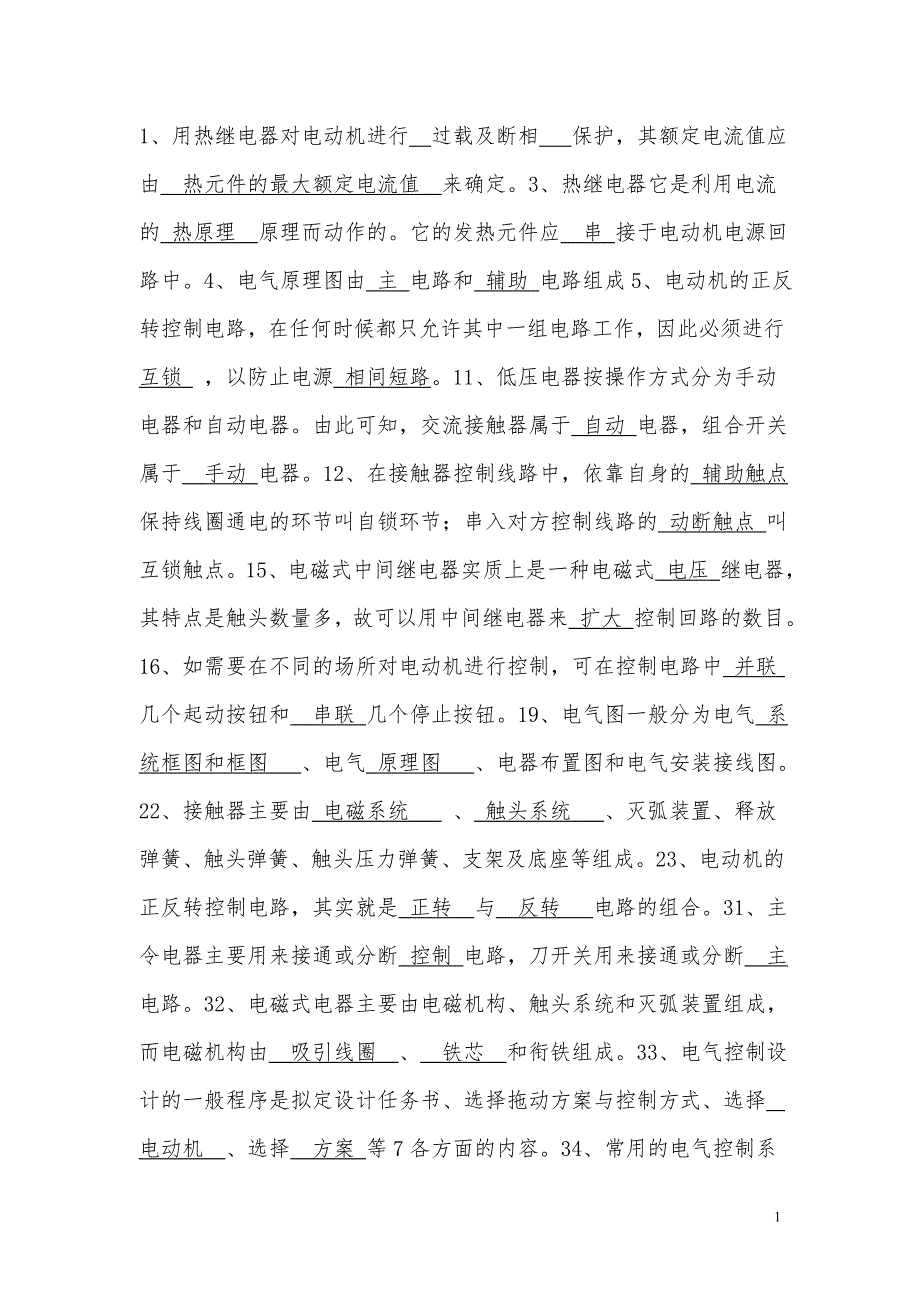 1、用热继电器对电动机进行__过载及断相___保护，其额定电流值应
由__热元件的最大额定电流值__来确定。3、热继电器它是利用电流
的_热原理__原理而动作的。它的发热元件应__串_接于电动机电源回
路中。4、电气原理图由_主_电路和_辅助_电路组成5、电动机的正反
转控制电路，在任何时候都只允许其中一组电路工作，因此必须进行
互锁_，以防止电源_相间短路。11、低压电器按操作方式分为手动
电器和自动电器。由此可知，交流接触器属于_自动_电器，组合开关
属于__手动_电器。12、在接触器控制线路中，依靠自身的_辅助触点
保持线圈通电的环节叫自锁环节；串入对方控制线路的_动断触点_叫
互锁触点。15、电磁式中间继电器实质上是一种电磁式_电压_继电器，
其特点是触头数量多，故可以用中间继电器来_扩大_控制回路的数目。
16、如需要在不同的场所对电动机进行控制，可在控制电路中_并联_
几个起动按钮和__串联_几个停止按钮。19、电气图一般分为电气_系
统框图和框图___、电气_原理图___、电器布置图和电气安装接线图。
22、接触器主要由_电磁系统___、_触头系统___、灭弧装置、释放
弹簧、触头弹簧、触头压力弹簧、支架及底座等组成。23、电动机的
正反转控制电路，其实就是_正转__与__反转___电路的组合。31、主
令电器主要用来接通或分断_控制_电路，刀开关用来接通或分断__主
电路。32、电磁式电器主要由电磁机构、触头系统和灭弧装置组成，
而电磁机构由__吸引线圈__、__铁芯__和衔铁组成。33、电气控制设
计的一般程序是拟定设计任务书、选择拖动方案与控制方式、选择__
电动机__、选择__方案_等7各方面的内容。34、常用的电气控制系
1